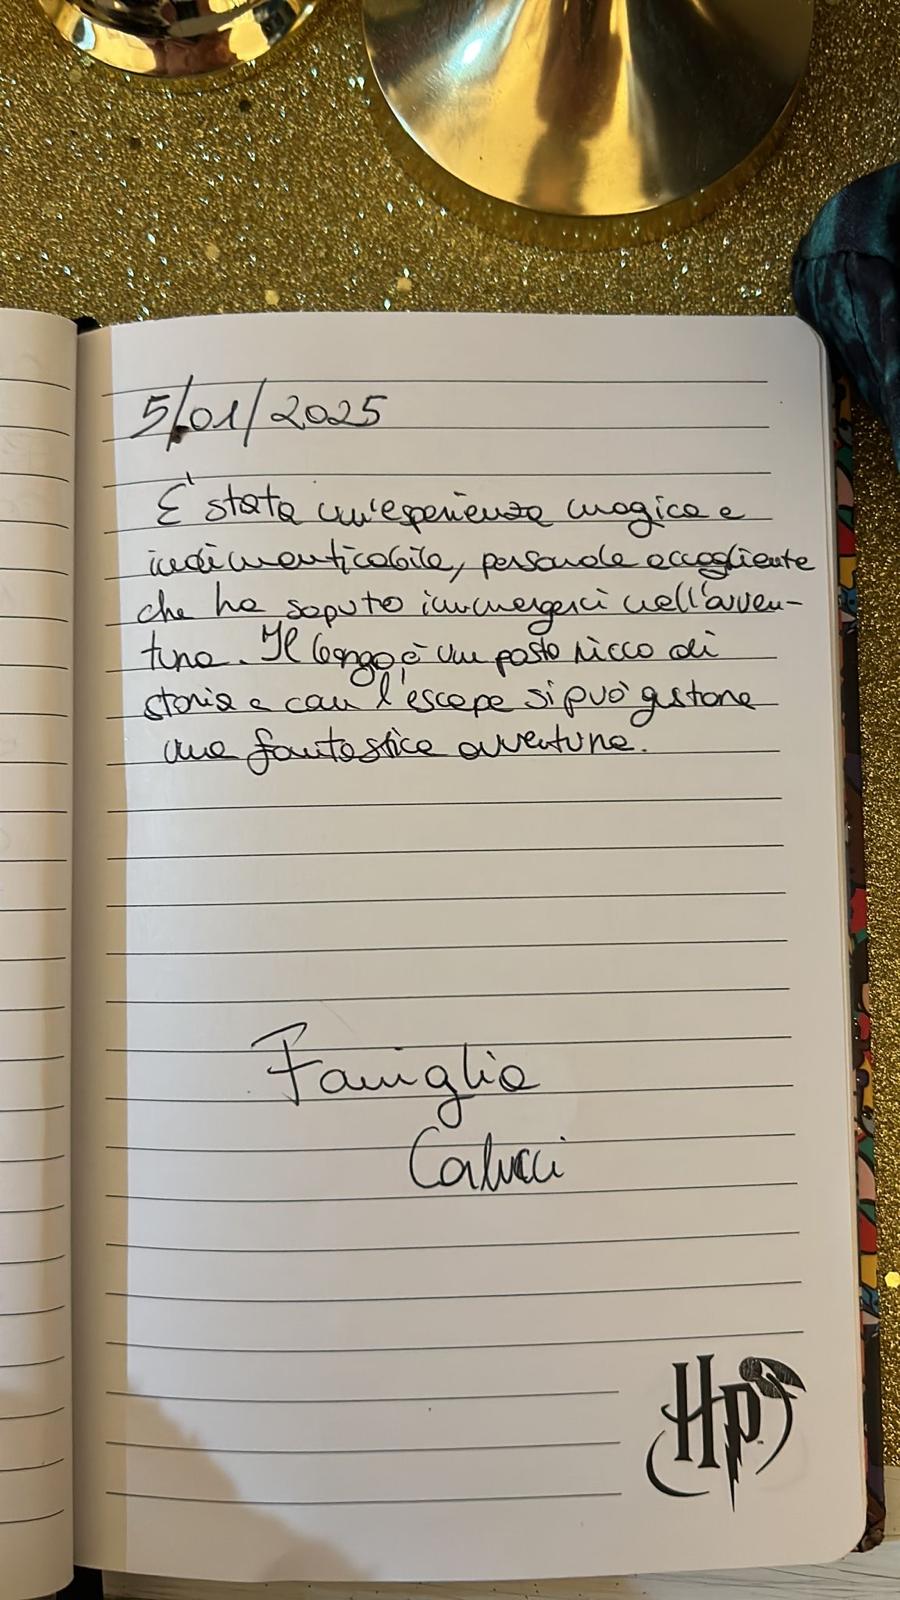 5/01/2025
E' stata un'esperienza magica e
indimenticabile, personale accogliente
che ha saputo immergerci nell'avven-
tura. Il borgo è un posto ricco di
storia e con l'escape si può gustare
una fantastica avventura.
Famiglia
Calucci
HP